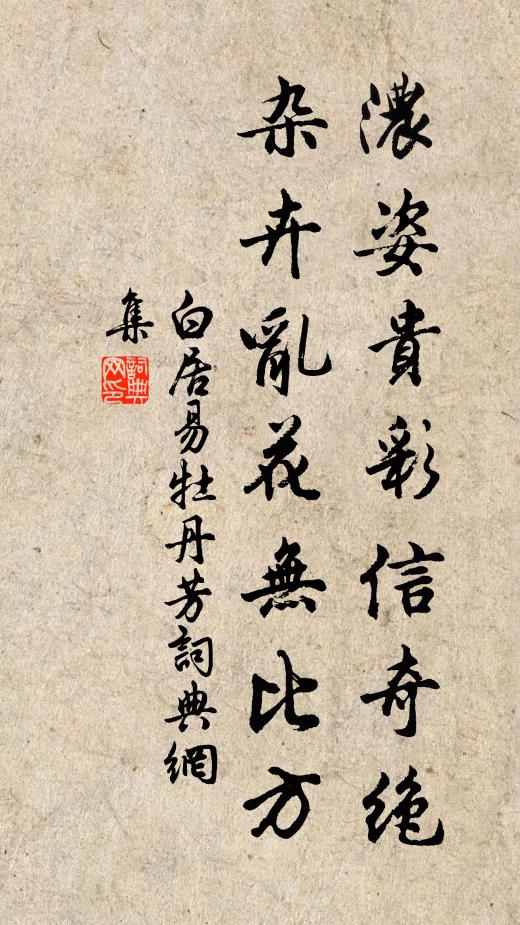 濃姿貴彩信奇绝
杂卉亂花無比方
白居易牡丹芳詞典網
集
詞典
网印